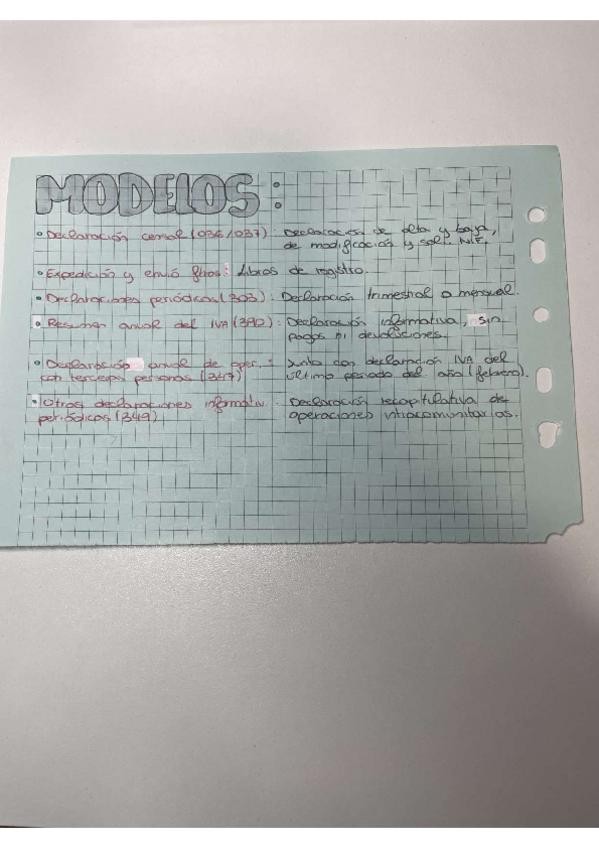 MODELOS:
• Declaración censal (036/037): Declaración de alta y baja,
de modificación y sol. N.I.F.
• Expedición y envió fras: Libros de registro.
• Declaraciones periódicas (303): Declaración trimestral o mensual.
• Resumen anual del IVA (390): Declaración informativa, sin
pagos ni devoluciones.
• Declaración anual de oper. : Junto con declaración IVA del
con terceras personas (347) último periodo del año (febrero).
• Otras declaraciones informativ. Declaración recapitulativa de
periódicas (349) operaciones intracomunitarias.